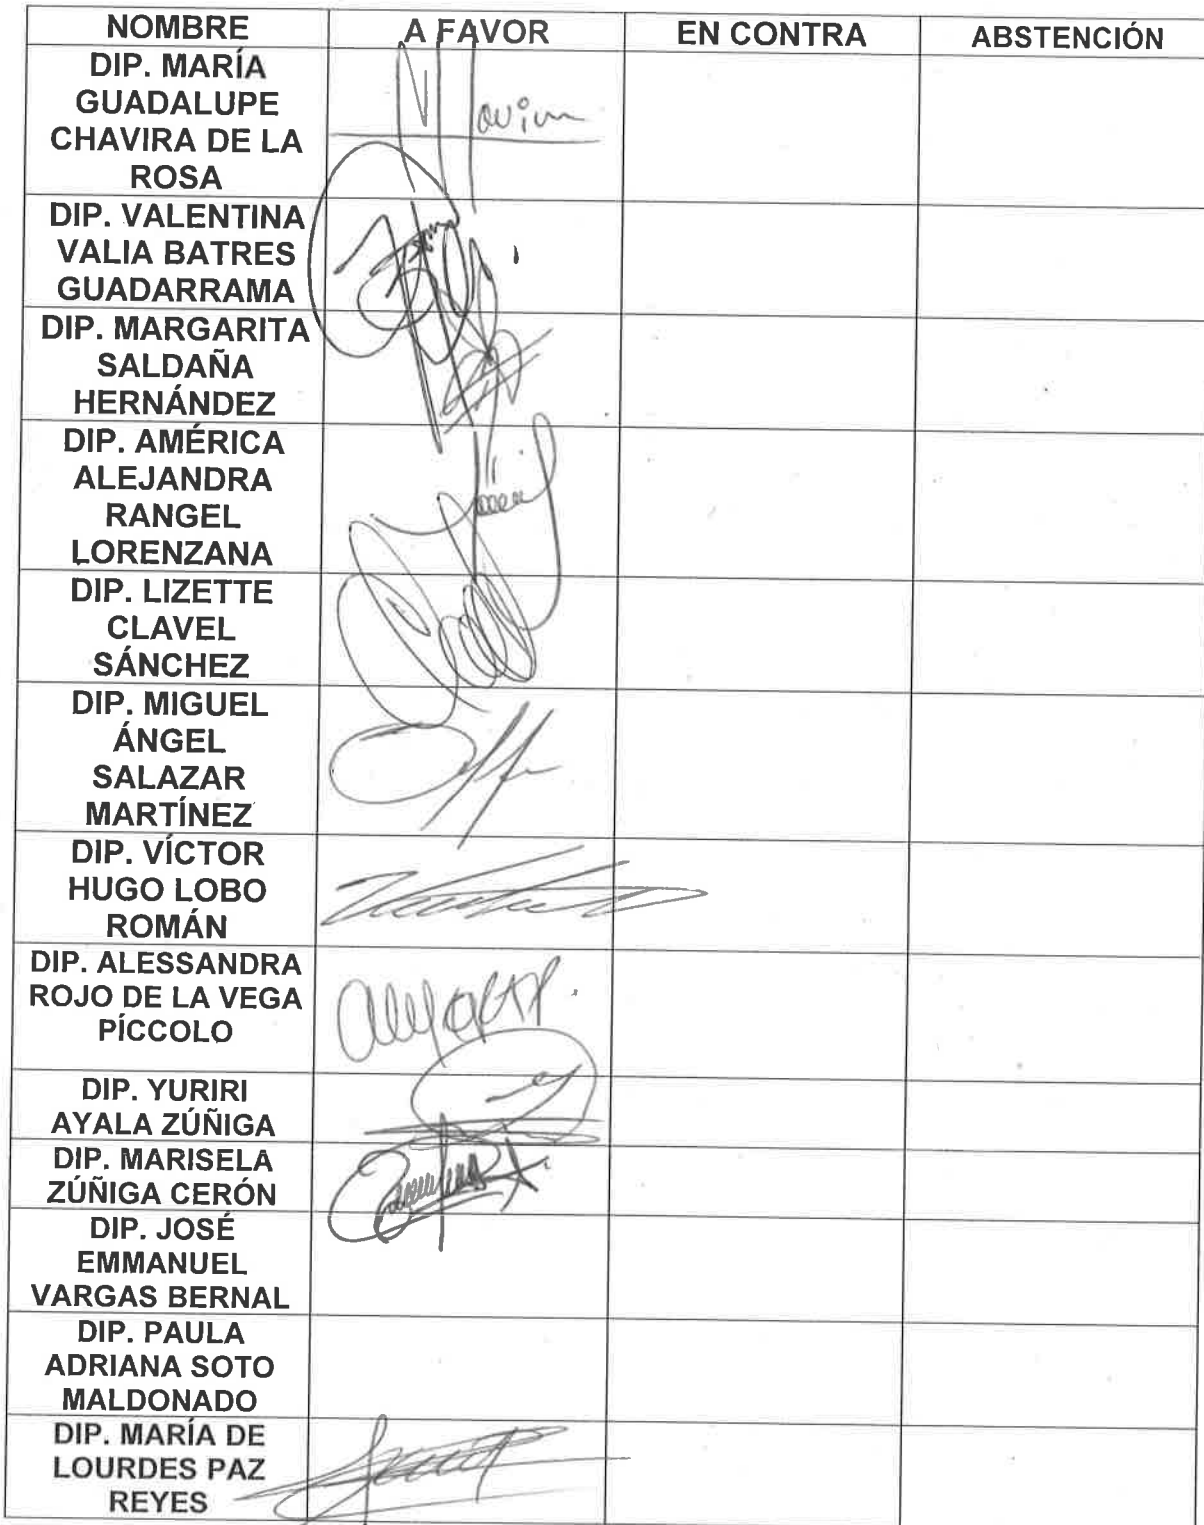 NOMBRE A FAVOR EN CONTRA ABSTENCIÓN
DIP. MARÍA
GUADALUPE
CHAVIRA DE LA
ROSA
DIP. VALENTINA
VALIA BATRES
GUADARRAMA
DIP. MARGARITA
SALDAÑA
HERNÁNDEZ
DIP. AMÉRICA
ALEJANDRA
RANGEL
LORENZANA
DIP. LIZETTE
CLAVEL
SÁNCHEZ
DIP. MIGUEL
ÁNGEL
SALAZAR
MARTÍNEZ
DIP. VÍCTOR
HUGO LOBO
ROMÁN
DIP. ALESSANDRA
ROJO DE LA VEGA
PÍCCOLO
DIP. YURIRI
AYALA ZÚÑIGA
DIP. MARISELA
ZÚÑIGA CERÓN
DIP. JOSÉ
EMMANUEL
VARGAS BERNAL
DIP. PAULA
ADRIANA SOTO
MALDONADO
DIP. MARÍA DE
LOURDES PAZ
REYES